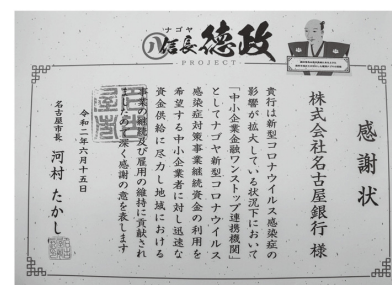 ナゴヤ
信長徳政
PROJECT
感謝状
株式会社名古屋銀行 様
貴行は新型コロナウイルス感染症の
影響が拡大している状況下において
「中小企業金融ワンストップ連携機関」
としてナゴヤ新型コロナウイルス
感染症対策事業継続資金の利用を
希望する中小企業者に対し迅速な
資金供給に尽力し地域における
事業の継続及び雇用の維持に貢献され
ましたので深く感謝の意を表します
令和二年六月十五日
名古屋市長 河村たかし